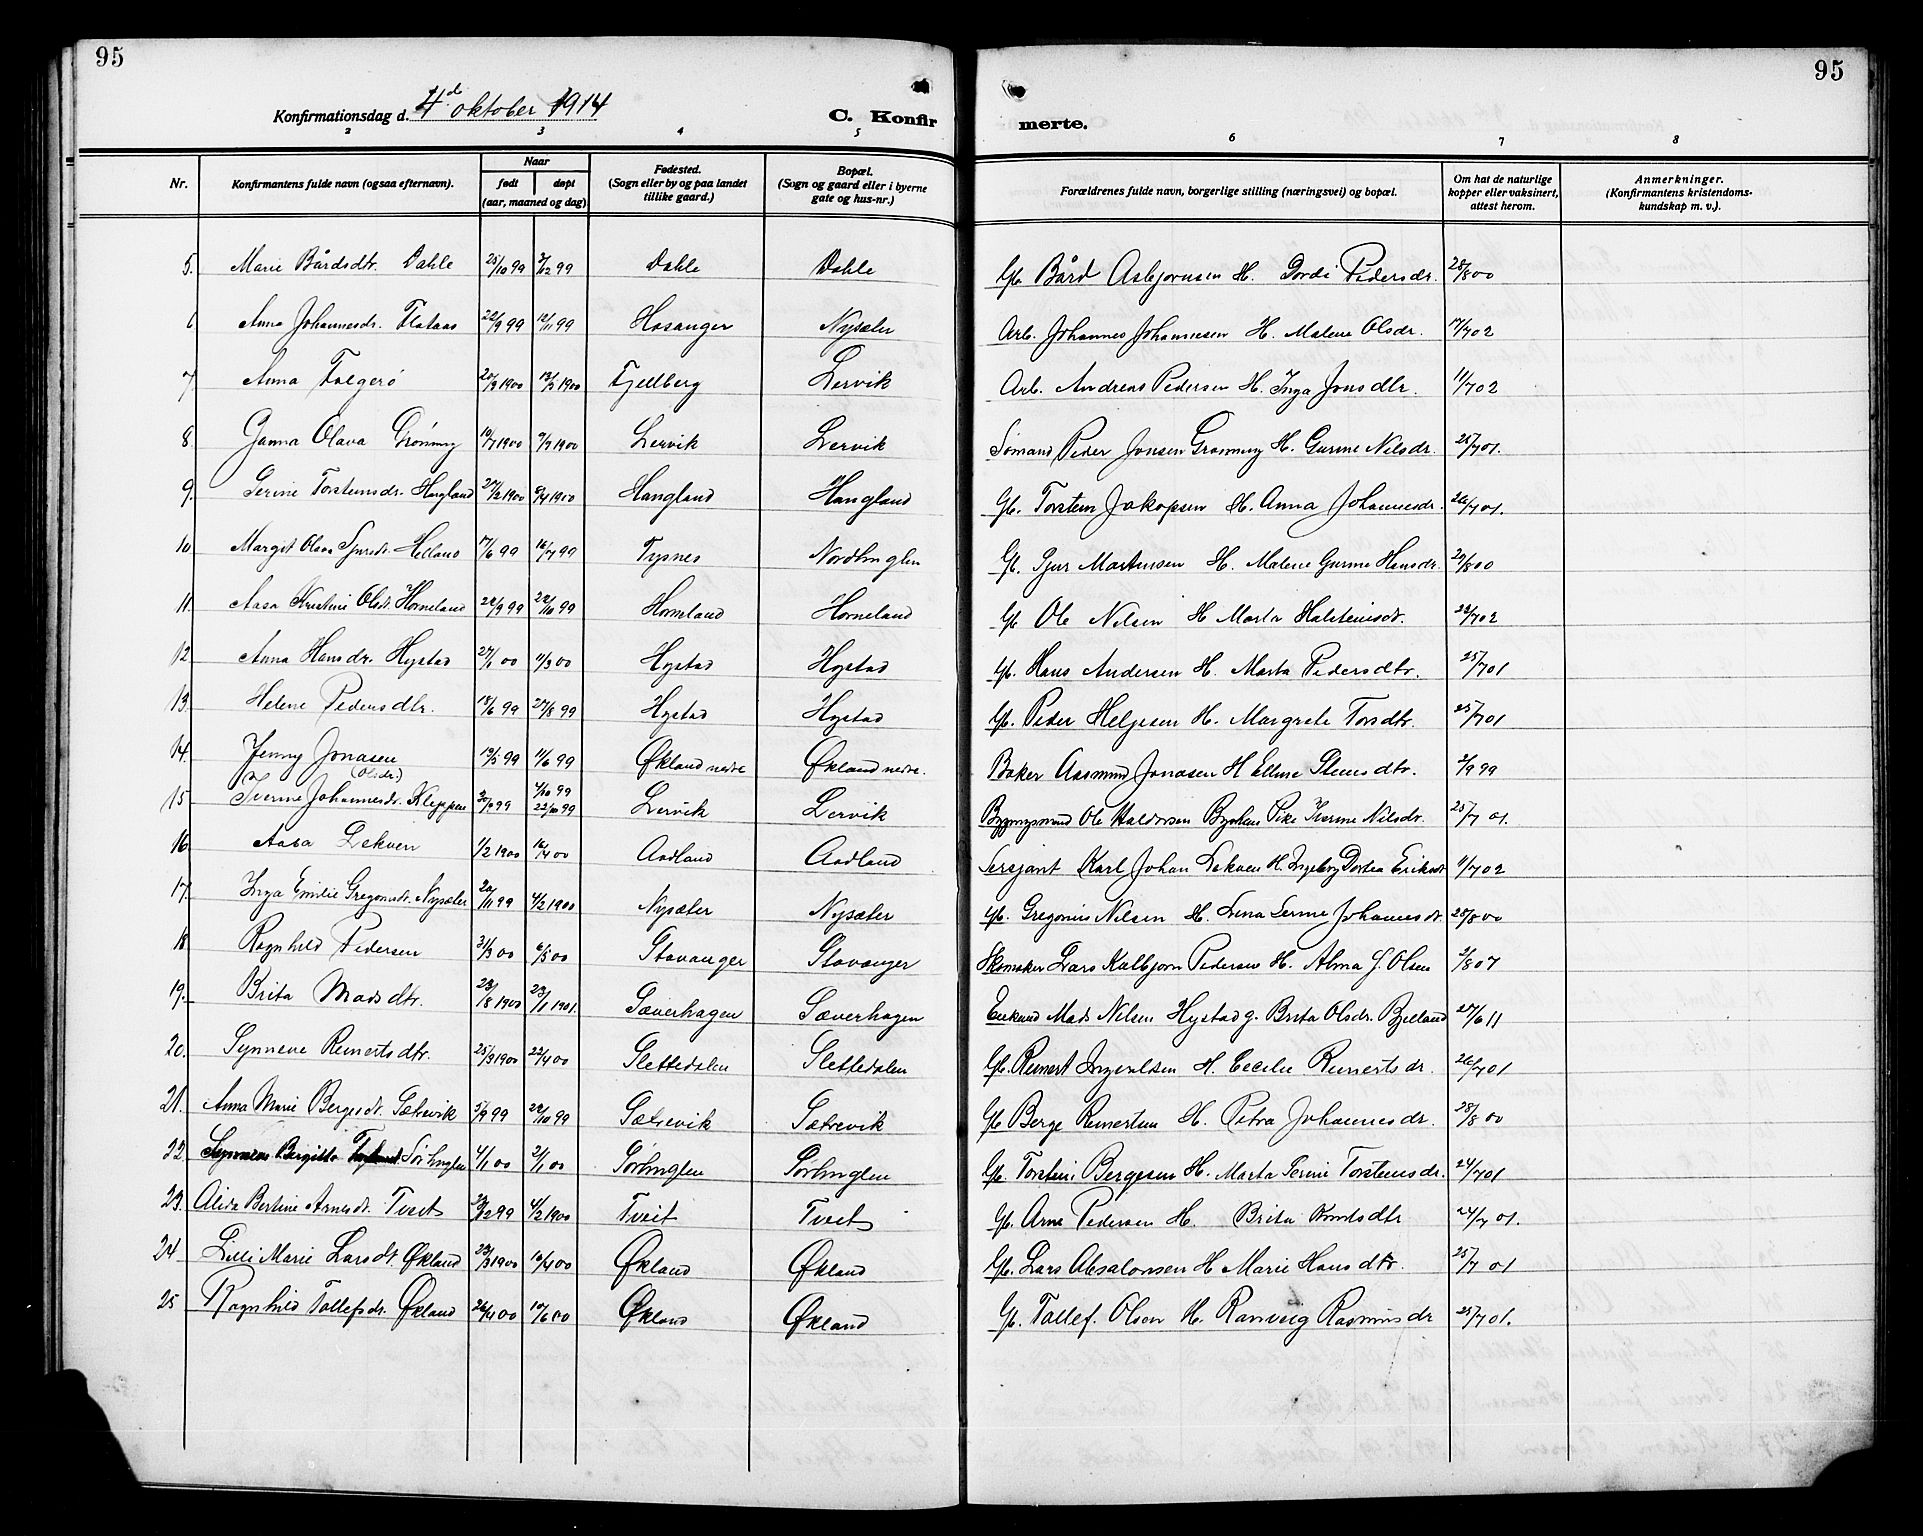 95
95
Konfirmationsdag d. 4d oktober 1914
C. Konfir merte.
2 3 4 5 6 7 8
Nr. Konfirmantens fulde navn (ogsaa efternavn). Naar født døpt (aar, maaned og dag) Fødested. (Sogn eller by og paa landet tillike gaard.) Bopæl. (Sogn og gaard eller i byerne gate og hus-nr.) Forældrenes fulde navn, borgerlige stilling (næringsvei) og bopæl. Om hat de naturlige kopper eller vaksinert, attest herom. Anmerkninger. (Konfirmantens kristendoms-kundskap m. v.).
5. Marie Bårdsdtr. Dahle 25/10 99 3/12 99 Dahle Dahle Gb. Bård Asbjørnsen H. Dordi Pedersdr. 28/8 00
6 Anna Johannesdr. Flataas 22/9 99 12/11 99 Hosanger Nysæter Arb. Johannes Johannesen H. Malene Olsdr. 17/7 02
7 Anna Folgerö 20/3 1900 13/5 1900 Fjellberg Lervik Arb. Andreas Pedersen H. Inga Jonsdtr. 11/7 02
8 Ganna Olava Grönning 10/7 1900 9/9 1900 Lervik Lervik Sömand Peder Jonsen Grønning H. Gurine Nilsdr. 25/7 01.
9. Serine Torsteinsdr. Haugland 27/2 1900 8/4 1900 Haugland Haugland Gb. Torstein Jakopsen H. Anna Johannesdr. 26/7 01.
10 Margit Olava Sjursdr. Helland 17/6 99 16/7 99 Tysnes Nordhuglen Gb. Sjur Martinsen H. Malene Gurine Hansdr. 20/8 00
11. Aasa Kristine Olsdr. Horneland 22/9 99 22/10 99 Horneland Horneland Gb Ole Nilsen H Marta Halsteinsdr. 23/7 02
12 Anna Hansdr. Hystad 27/1 00 11/3 00 Hystad Hystad Gb. Hans Andersen H. Marta Pedersdtr. 25/7 01
13. Helene Pedersdtr. 18/6 99 27/8 99 Hystad Hystad Gb. Peder Helgesen H. Margrete Torsdtr. 25/7 01
14. Jenny Jonasen 19/5 99 11/6 99 Økland nedre Økland nedre. Baker Aasmund Jonasen H Elline Steinsdtr. 2/9 99
15 Iverine Johannesdr. (Olsdr) Kleppen 99 22/10 99 Lervik Lervik Bygningsmand Ole Haldorsen Pike Iverine Nilsdr. 25/7 01.
16 Aasa Lekven 1/2 1900 16/4 00 Aadland Aadland Sersjant Karl Johan Lekven H. Ingeborg Dortea Eriksdr 11/7 02
17. Inga Emilie Gregoriusdr. Nysæter 20/11 99 4/2 1900 Nysæter Nysæter Gb. Gregorius Nilsen H. Lina Serine Johannesdr. 28/8 00
18 Ragnhild Pedersen 31/3 00 6/5 00 Stavanger Stavanger Skomaker Lars Kolbjørn Pedersen H. Alma G. Olsen 2/8 07
19. Brita Madsdtr. 23/8 1900 23/1 1901. Sæverhagen Sæverhagen Enkemd Mads Nilsen Hystad g. Brita Olsdr. Bjelland 27/6 11
20. Synneve Reinertsdtr. 25/3 1900 22/4 00 Slettedalen Slettedalen Gb. Reinert Ingvaldsen H. Cecilie Reinertsdr. 26/7 01
21. Anna Marie Bergesdr. Sætrevik 5/9 99 22/10 99 Sætrevik Sætrevik Gb Berge Reinertsen H. Petra Johannesdr. 28/8 00
22. Synneva Bergitta Sörhuglen 4/1 00 21/1 00 Sörhuglen Sörhuglen Gb. Torstein Bergesen H. Marta Serine Torsteinsdr. 24/7 01
23. Alida Bertine Arnesdr. Tveit 99 4/2 1900 Tveit Tveit Gb. Arne Pedersen H. Brita Knutsdtr 24/7 01.
24 Lilli Marie Larsdt. Økland 23/3 1900 16/4 00 Økland Økland Gb. Lars Absalonsen H Marie Hansdtr. 25/7 01
25 Ragnhild Tollefsdr. Økland 26/4 00 10/6 00 Økland Økland Gb. Tollef. Olson H. Ranveig Rasmusdr 25/7 01.